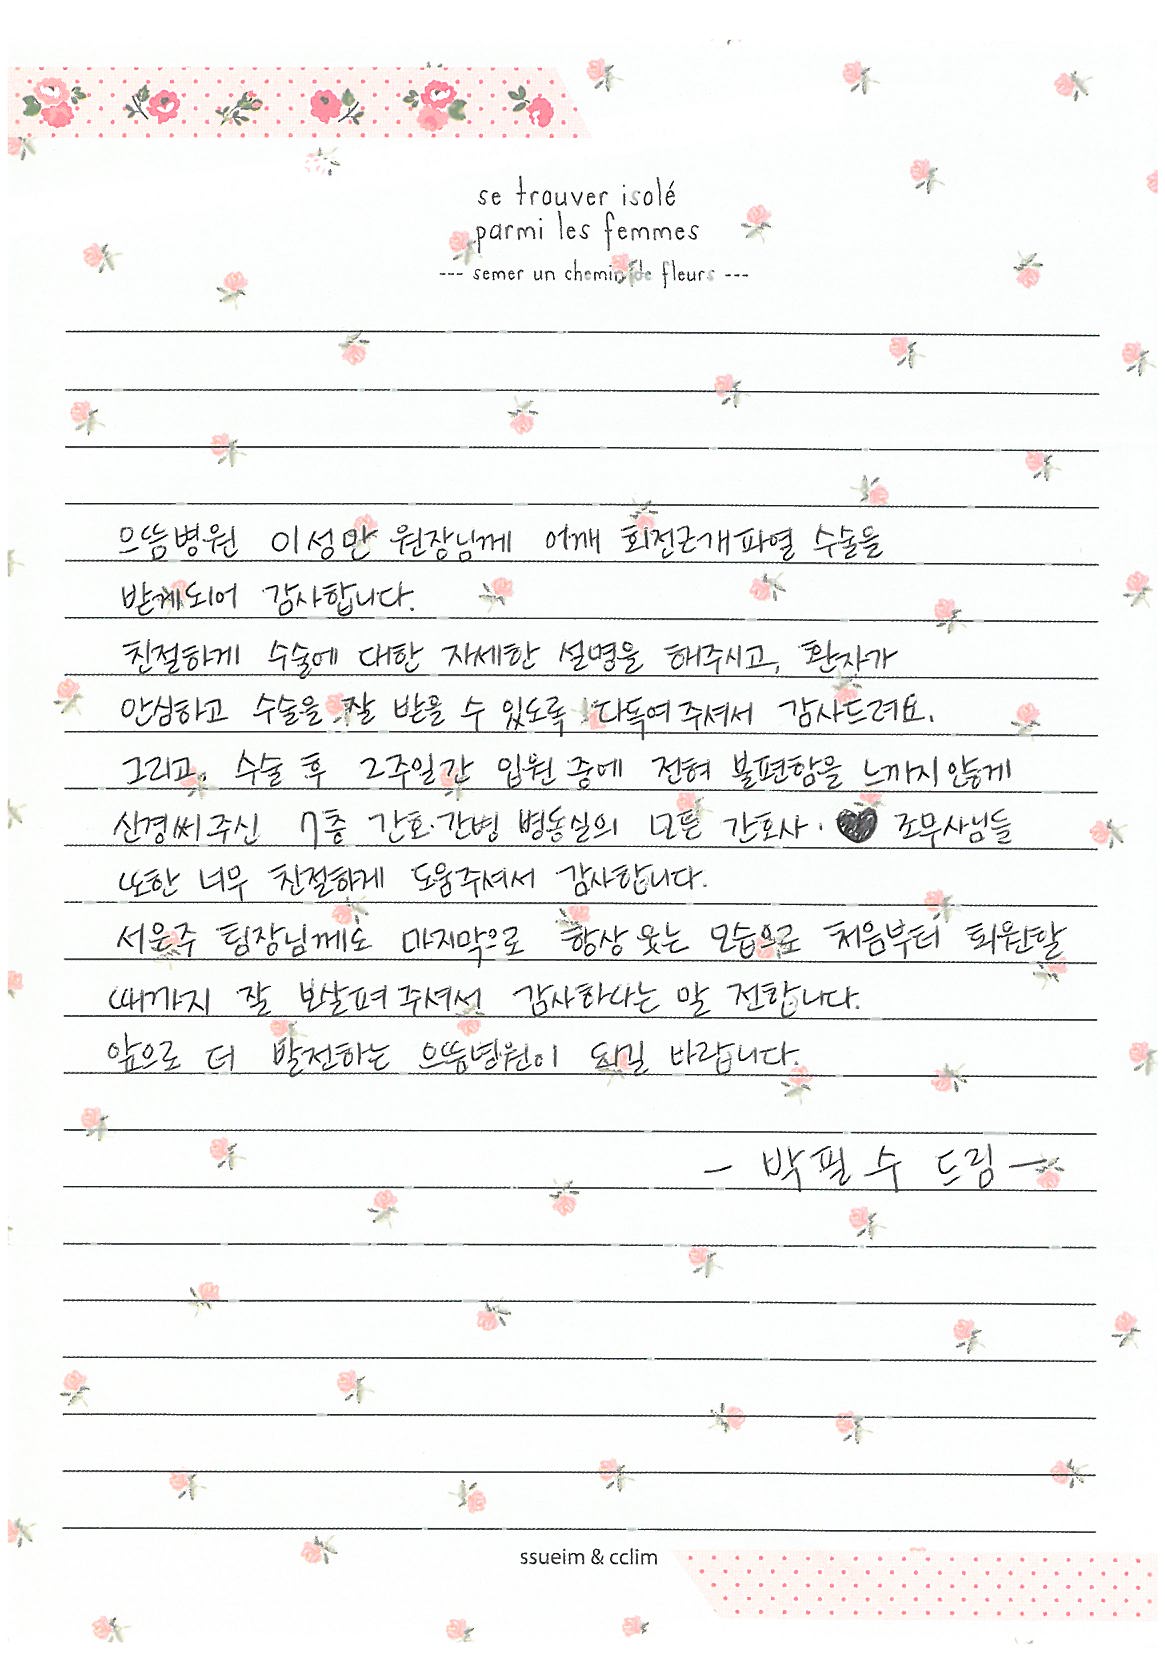 se trouver isolé
parmi les femmes
--- semer un chemin de fleurs ---
으뜸병원 이성만 원장님께 어깨 회전근개파열 수술을
받게되어 감사합니다.
친절하게 수술에 대한 자세한 설명을 해주시고, 환자가
안심하고 수술을 잘 받을 수 있도록 다독여주셔서 감사드려요.
그리고, 수술 후 2주일간 입원 중에 전혀 불편함을 느끼지 않게
신경써주신 7층 간호·간병 병동실의 모든 간호사· ♥ 조무사님들
또한 너무 친절하게 도움주셔서 감사합니다.
서은주 팀장님께도 마지막으로 항상 웃는 모습으로 처음부터 퇴원할
때까지 잘 보살펴주셔서 감사하다는 말 전합니다.
앞으로 더 발전하는 으뜸병원이 되길 바랍니다.
- 박필수 드림 -
ssueim & cclim